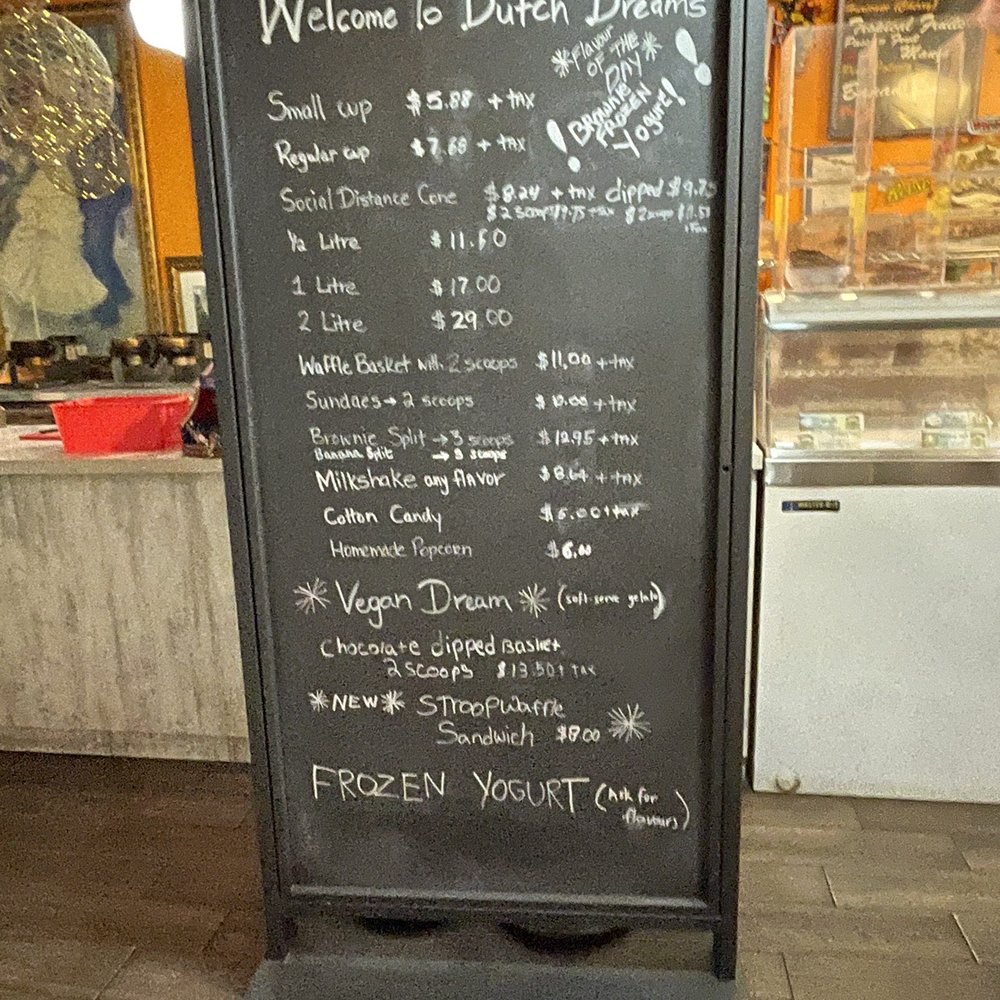 Welcome To Dutch Dreams
*Flavour*
OF THE
DAY
! BROWNIE
FROZEN
Yogurt! !
Small cup $5.88 + tax
Regular cup $7.68 + tax
Social Distance Cone $8.24 + tax dipped $9.75
$2 scoop
1/2 Litre $11.50
1 Litre $17.00
2 Litre $29.00
Waffle Basket with 2 scoops $11.00 + tax
Sundaes → 2 scoops + tax
Brownie Split → 3 scoops $12.95 + tax
Banana Split → 3 scoops
Milkshake any flavor $8.64 + tax
Cotton Candy + tax
Homemade Popcorn $6.00
*Vegan Dream* (soft-serve gelato)
Chocolate dipped Basket
2 scoops $13.50 + tax
*NEW* STROOPWAFFLE
Sandwich $8.00 *
FROZEN YOGURT (Ask for
flavours)